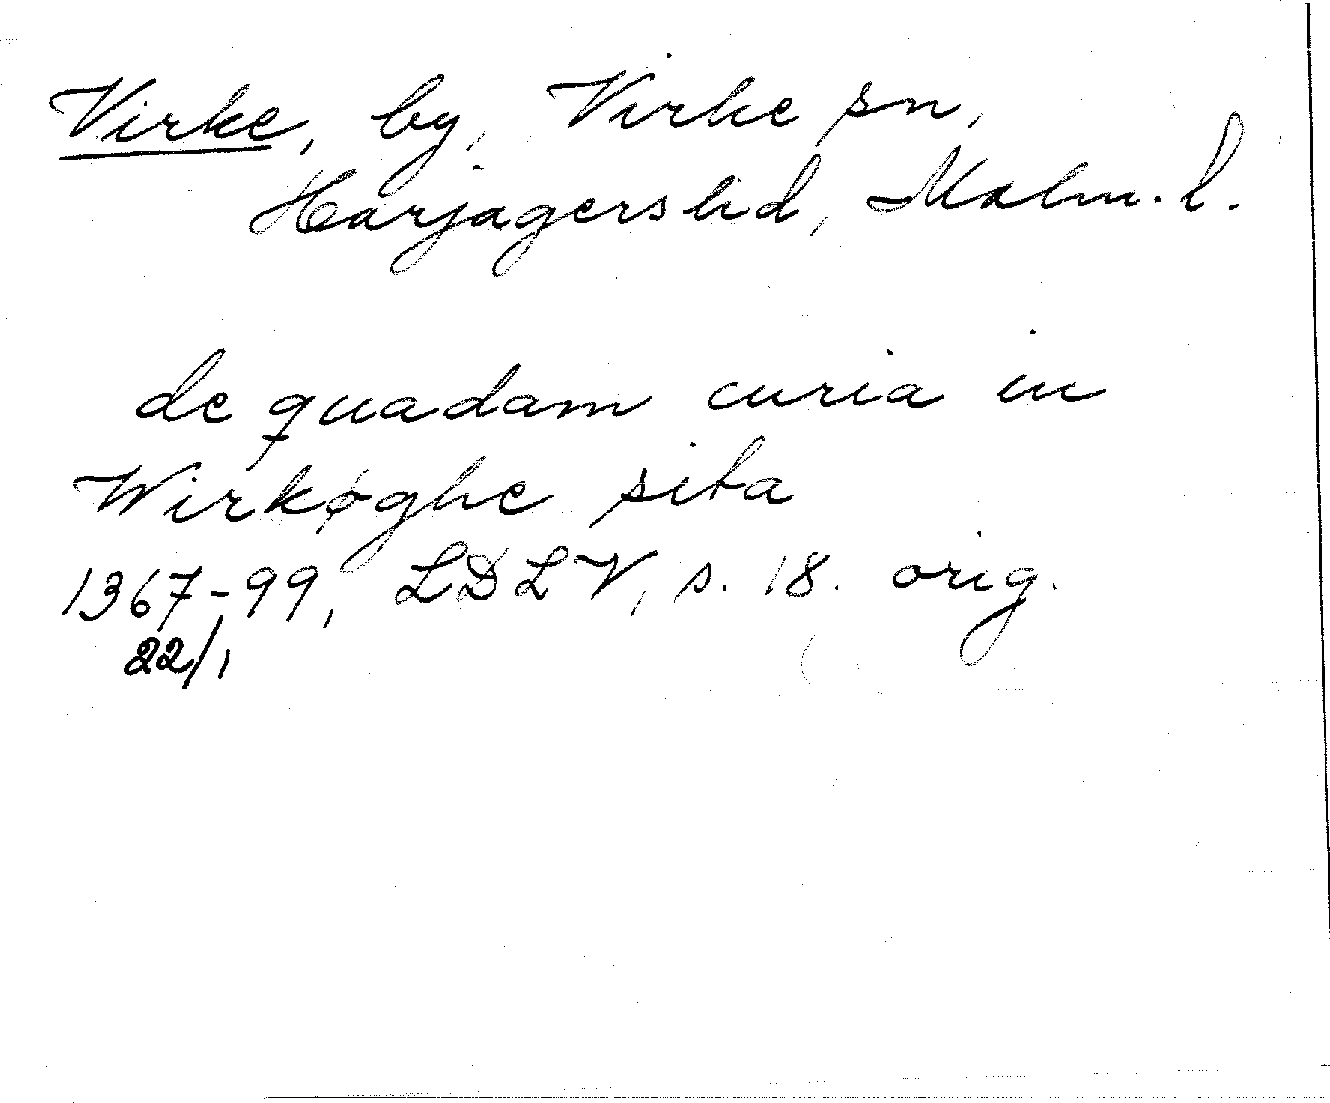 Virke, by, Virke sn,
Harjagers hd, Malm. l.
de quadam curia in
Wirkøghe sita
1367-99, LDLV, s. 18. orig.
22/1